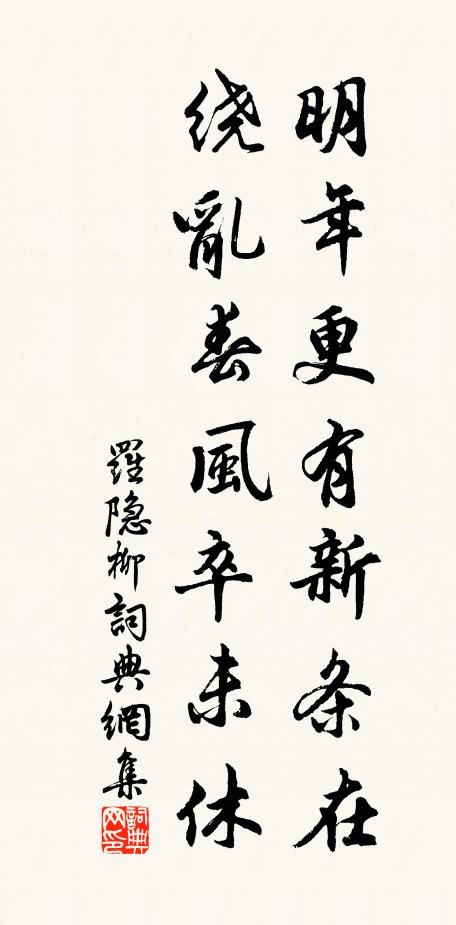 明年更有新条在
绕亂春風卒未休
羅隐柳詞典網集
詞典网印